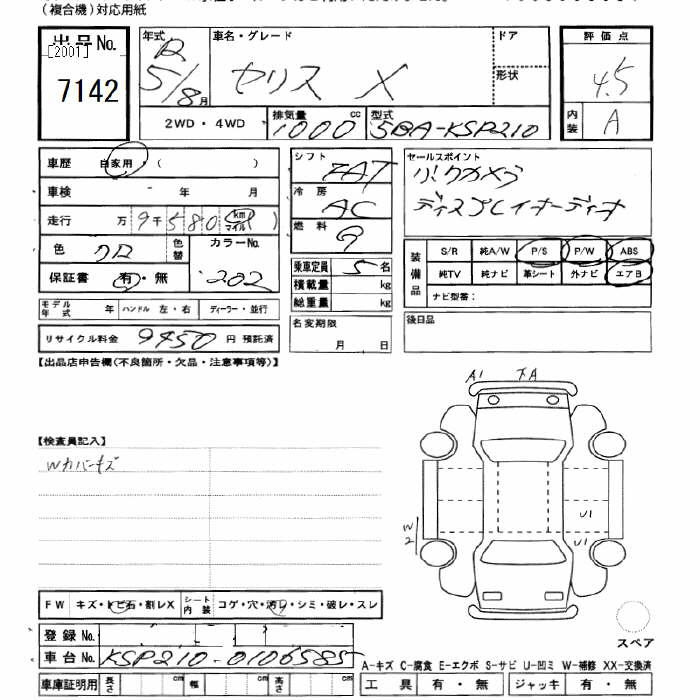 (複合機)対応用紙
出品No.
[2001]
7142
年式
R
5/8月
車名・グレード
ヤリス X
ドア
形状
2WD・4WD
排気量
1000 cc
型式
5BA-KSP210
評価点
4.5
内装
A
車歴 自家用・( )
車検 年 月
走行 万 9千580 (km マイル)
色 クロ
色替
カラーNo.
202
保証書 有・無
モデル年式 年 ハンドル 左・右 ディーラー・並行
リサイクル料金 9450円 預託済
シフト FAT
冷房 AC
燃料 G
乗車定員 5名
積載量 kg
総重量 kg
名変期限
月 日
セールスポイント
バックカメラ
ディスプレイオーディオ
装備品
S/R 純A/W P/S P/W ABS
純TV 純ナビ 革シート 外ナビ エアB
ナビ型番:
後日品
【出品店申告欄(不良箇所・欠品・注意事項等)】
【検査員記入】
Wカバーキズ
A1 下A
U1
U1
W2
スペア
FW キズ・トビ石・割レX
シート内装 コゲ・穴・汚レ・シミ・破レ・スレ
登録No.
車台No. KSP210-0106585
車庫証明用 長さ cm 幅 cm 高さ cm
A-キズ C-腐食 E-エクボ S-サビ U-凹ミ W-補修 XX-交換済
工具 有・無 ジャッキ 有・無